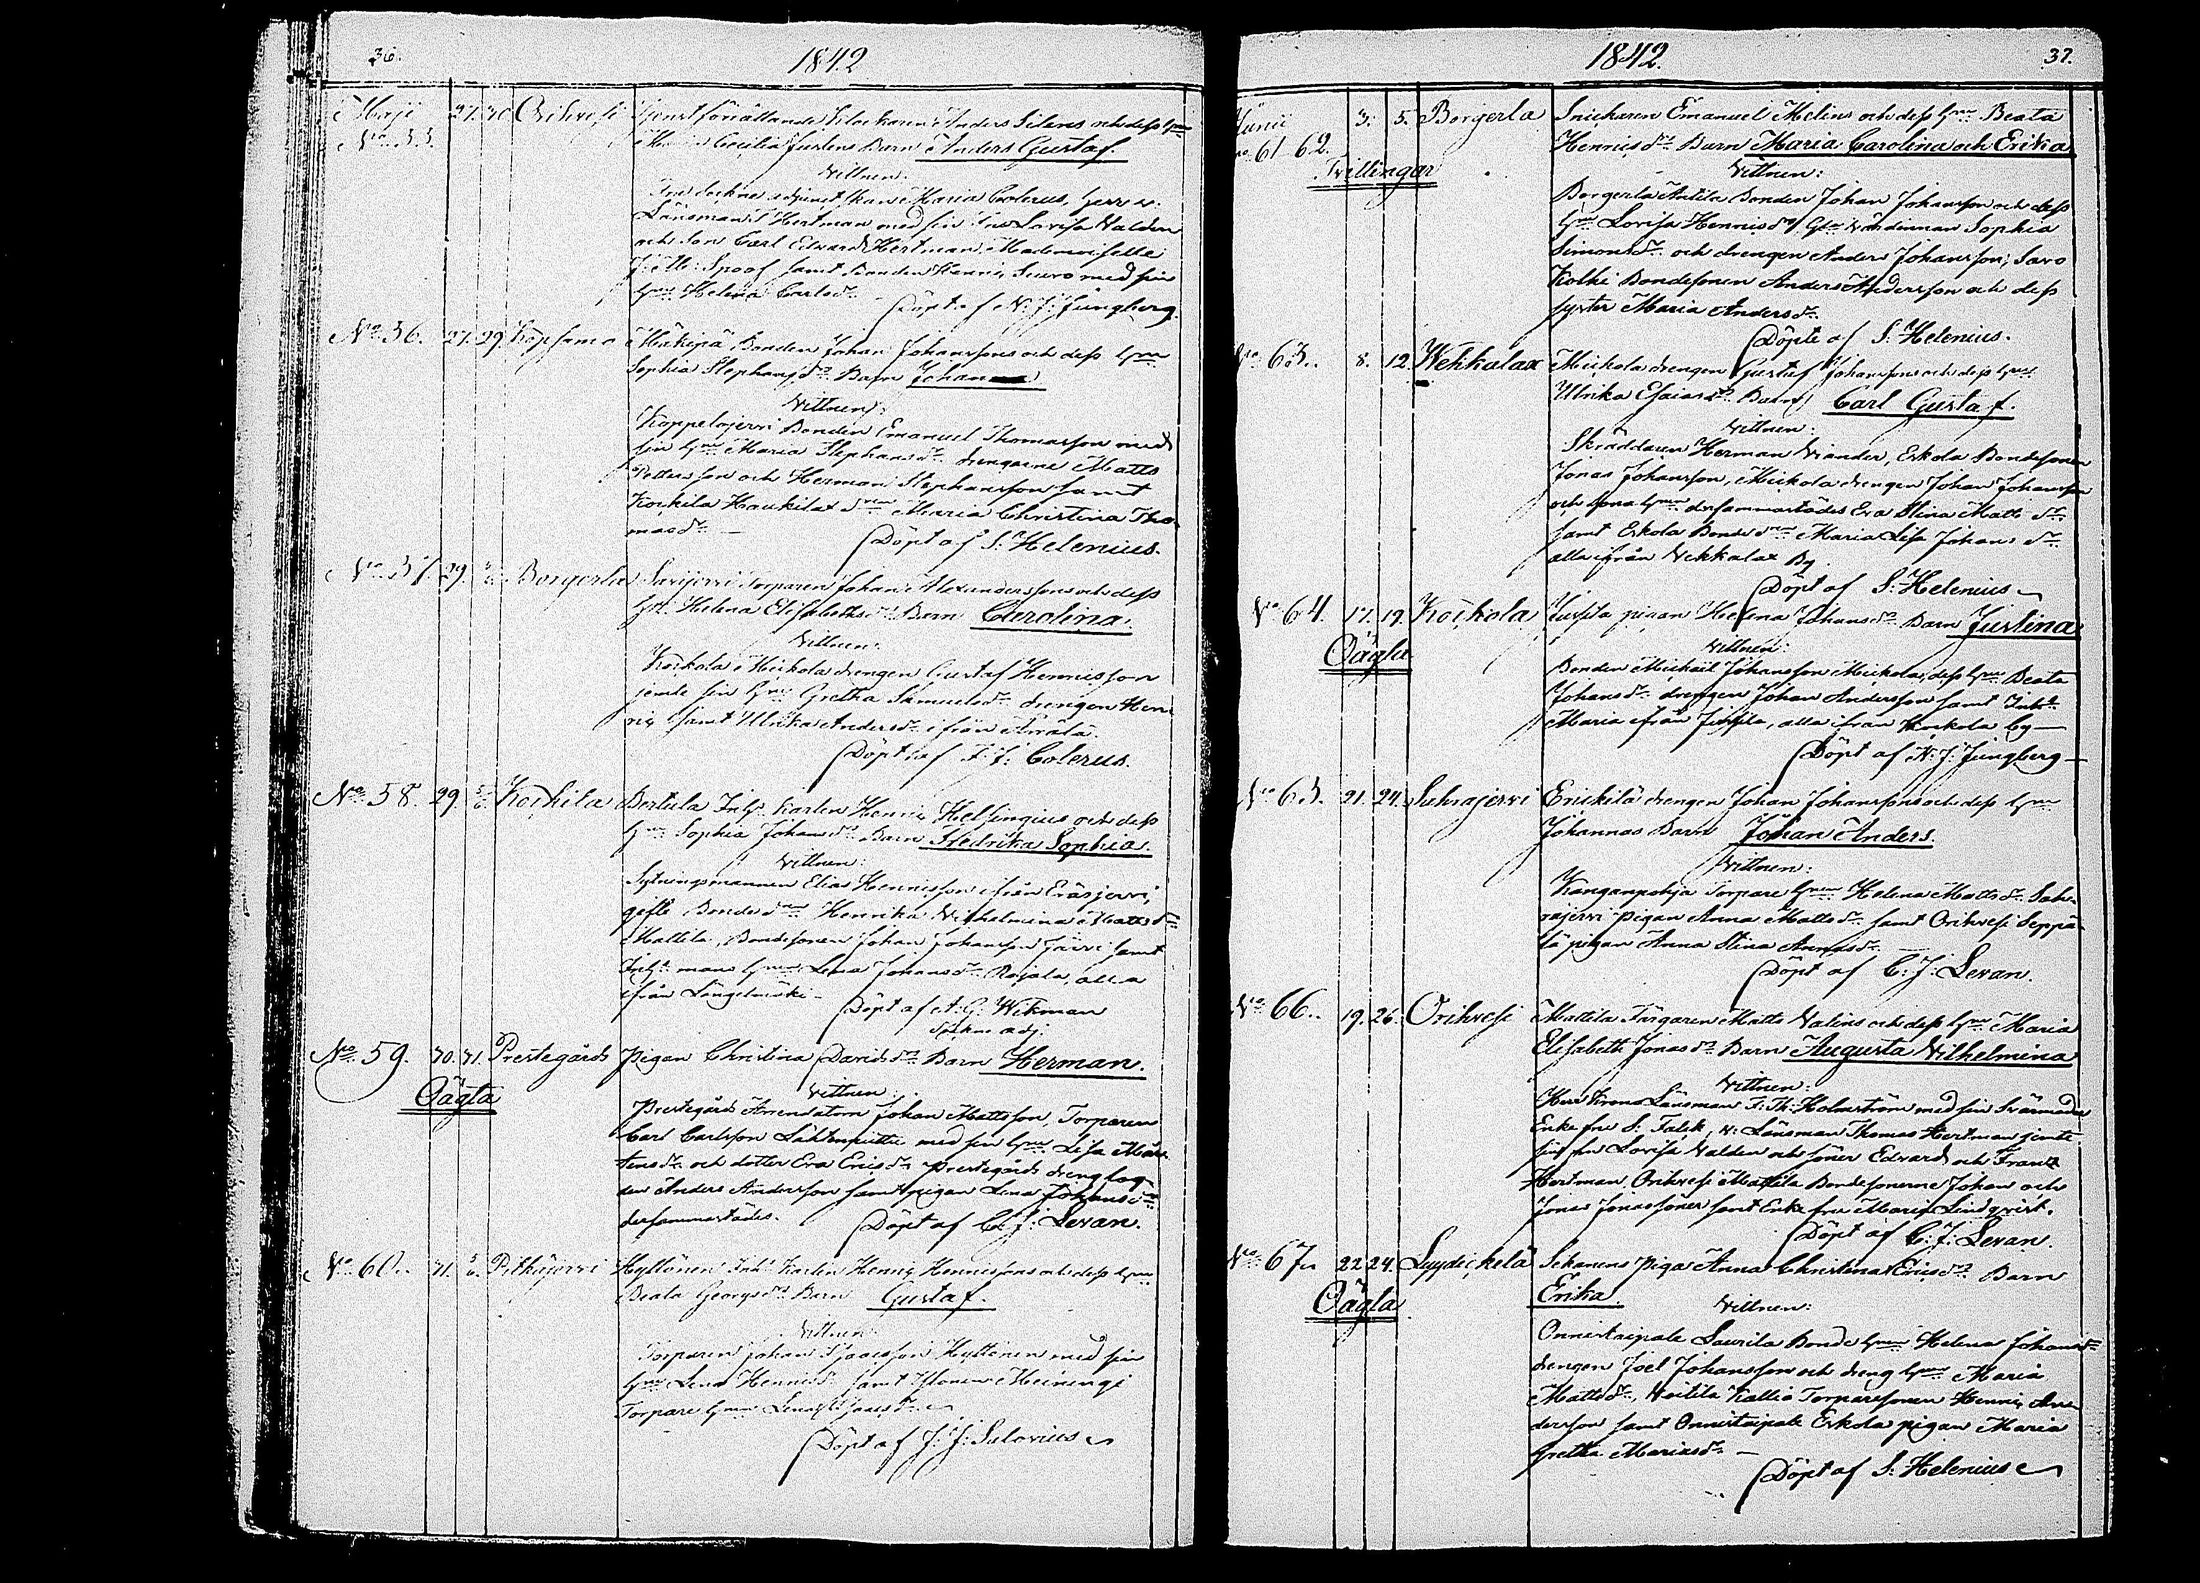 36.
1842
Maji
No 55. 27. 30. Orihvesi Tjenstförrättande Klockaren Anders Silens och dess Hru
Maria Cecilia Justens Barn Anders Gustaf.
Vittnen:
adjunctskan Maria Colerus, Herr v:
Länsman T Hertman med sin Fru Lovisa Valden
och Son Carl Edvard Hertman, Mademoiselle
Spoof samt Bonden Henric Suvro med sin
Hru Helena Carlsdr.
Döpt af N: J: Jungberg.
No 56. 27. 29. Kopsamo Mäkipä Bonden Johan Johanssons och dess Hru
Sophia Stephansdr Barn Johan
Vittnen:
Koppelojervi Bonden Emanuel Thomasson med
sin Hru Maria Stephansdr drengarne Matts
Pettersson och Herman Stephansson samt
Koikila Haukilax drn Maria Christina Tho-
masdr
Döpt af S: Helenius.
No 57. 29. Borgerla Savijervi Torparen Johan Alexanderssons och dess
H: Helena Elisabethsdr Barn Carolina.
Vittnen:
Koikola Mickola drengen Gustaf Hennisson
jemte sin Hru Gretha Samuelsdr drengen Hen-
ric samt Ulrika Andersdr ifrån
Döpt af F: J: Colerus.
No 58. 29. Koikila Bertula Inhs Karlen Henric Helsingius och dess
Hru Sophia Johansdr Barn Hedrika Sophia.
Vittnen:
Sytningsmannen Elias Hennisson ifrån Eräsjervi,
gifte Bonde Henrika Wilhelmina Mattsdr
Mattila, Bondesonen Johan Johansson Järvi samt
Inhs mans Hru Lena Johansdr Rojala, alla
ifrån Längelmäki
Döpt af A: G: Wikman
Sockne adj:
No 59. 30. 31. Prestegårds pigan Christina Davidsdr Barn Herman.
Oägta
Vittnen:
Prestegårds Arrendatorn Johan Mattsson, Torparen
Carl Carlsson Lähtenpuitti med sin Hru Lisa Mår-
tensdr och dotter Eva Ericsdr Prestegårds dreng
Anders Andersson samt pigan Lena Johansdr
dersammastädes.
Döpt af C: J: Levan.
No 60. 31. Pitkäjervi Hyttönen Inhs Karlen Henric Hennissons och dess Hru
Beata Georgsdr Barn Gustaf.
Vittnen:
Torparen Johan Isacsson Hyttönen med sin
Hru Lena Hennisdr samt
Torpare Hrun Lena Isacsdr
Döpt af J: J: Salovius
1842.
37.
Junii
No 61 62. 3. 5. Borgerla Snickaren Emanuel Melins och dess Hru Beata
Hennisdr Barn Maria Carolina och Erika
Tvillingar
Vittnen:
Borgerla Antila Bonden Johan Johansson och dess
Hru Lovisa Hennisdr, Gla Värdinnan Sophia
Simonsdr och drengen Anders Johansson, Savo
Kolhi Bondesonen Anders Andersson och dess
syster Maria Andersdr
Döpte af S: Helenius.
No 63. 8. 12. Wehkalax Mickola drengen Gustaf Johanssons och dess Hru
Ulrika Esaiasdr Barn Carl Gustaf.
Vittnen:
Skräddaren Herman Viander, Erkola Bondesonen
Jonas Johansson, Mickola drengen Johan Johansson
och sona Hrun dersammastädes Eva Stina Mattsdr
samt Erkola Bonde Maria Lisa Johansdr
alla ifrån Vehkalax By.
Döpt af S: Helenius
No 64. 17. 19. Koikola Jussila pigan Helena Johansdr Barn Justina
Oägta
Vittnen:
Bonden Michail Johansson Mickola, dess Hru Beata
Johansdr drengen Johan Andersson samt Inhs
Maria ifrån Jussila, alla ifrån Koikola By
Döpt af N: J: Jungberg
No 65. 21. 24. Suhrajervi Erickilä drengen Johan Johanssons och dess Hru
Johannas Barn Johan Anders.
Vittnen:
Kanganpohja Torpare Hrun Helena Mattsdr Suh-
rajervi pigan Anna Mattsdr samt Orihvesi Seppä-
lä pigan Anna Stina Annasdr
Döpt af C: J: Levan.
No 66. 19. 26. Orihvesi Mattila Färgaren Matts Valins och dess Hru Maria
Elisabeth Jonasdr Barn Augusta Vilhelmina
Vittnen:
Herr Krono Länsman F: Th: Holmström med sin Svärmoder
Enke fru S: Falck, v: Länsman Thomas Hertman jemte
sin fru Lovisa Valden och söner Edvard och Frans
Hertman, Orihvesi Mattila Bondesönerne Johan och
Jonas Jonassöner samt Enke fru Maria Lindqvist.
Döpt af C: J: Levan.
No 67. 22. 24. Lyydickelä Sihvonens piga Anna Christina Ericsdr Barn
Erika.
Oägta
Vittnen:
Onnistaipale Laurila Bonde Hrun Helena Johansdr
drengen Joel Johansson och dreng Hrun Maria
Mattsdr, Voitila Kallio Torparesonen Henric An-
dersson samt Onnistaipale Erkola pigan Maria
Gretha Mariasdr
Döpt af S: Helenius